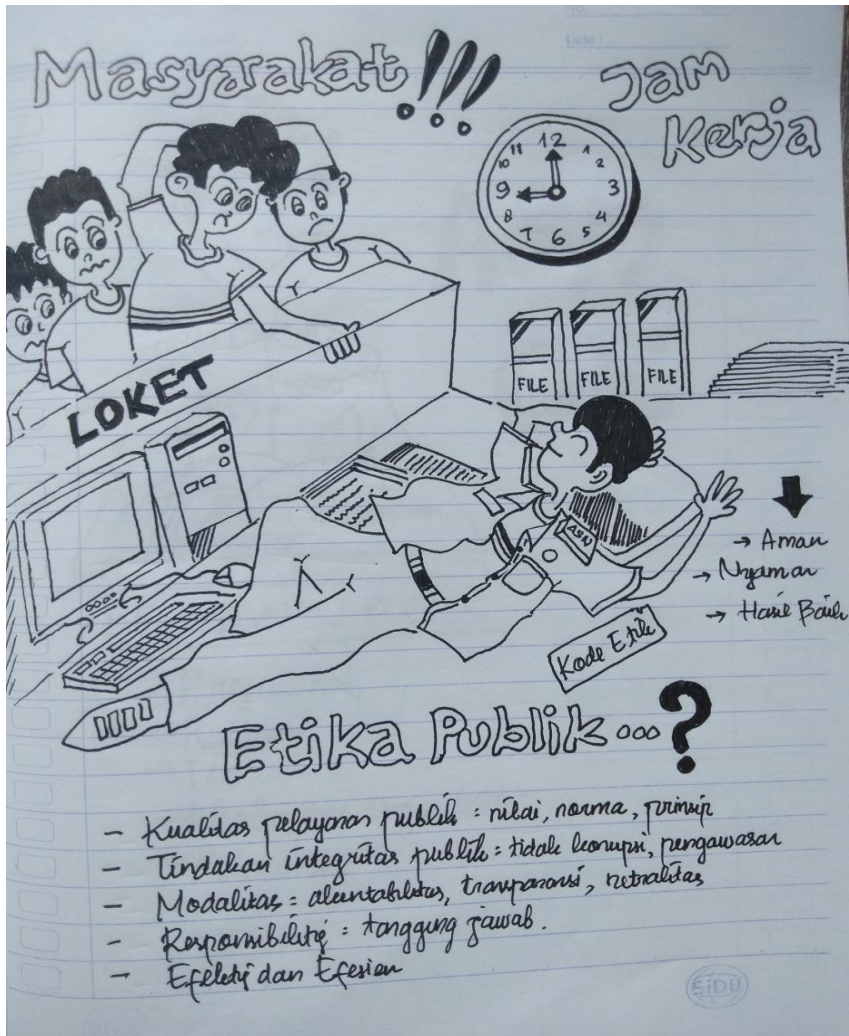 Date :
Masyarakat !!!
Jam
Kerja
11 12 1
10 2
9 3
8 4
7 6 5
LOKET
FILE FILE FILE
ASN
→ Aman
→ Nyaman
→ Hasil Baik
Kode Etik
Etika Publik...?
- Kualitas pelayanan publik = nilai, norma, prinsip
- Tindakan integritas publik = tidak korupsi, pengawasan
- Modalitas = akuntabilitas, transparansi, netralitas
- Responsibility = tanggung jawab.
- Efektif dan Efesien
SiDU